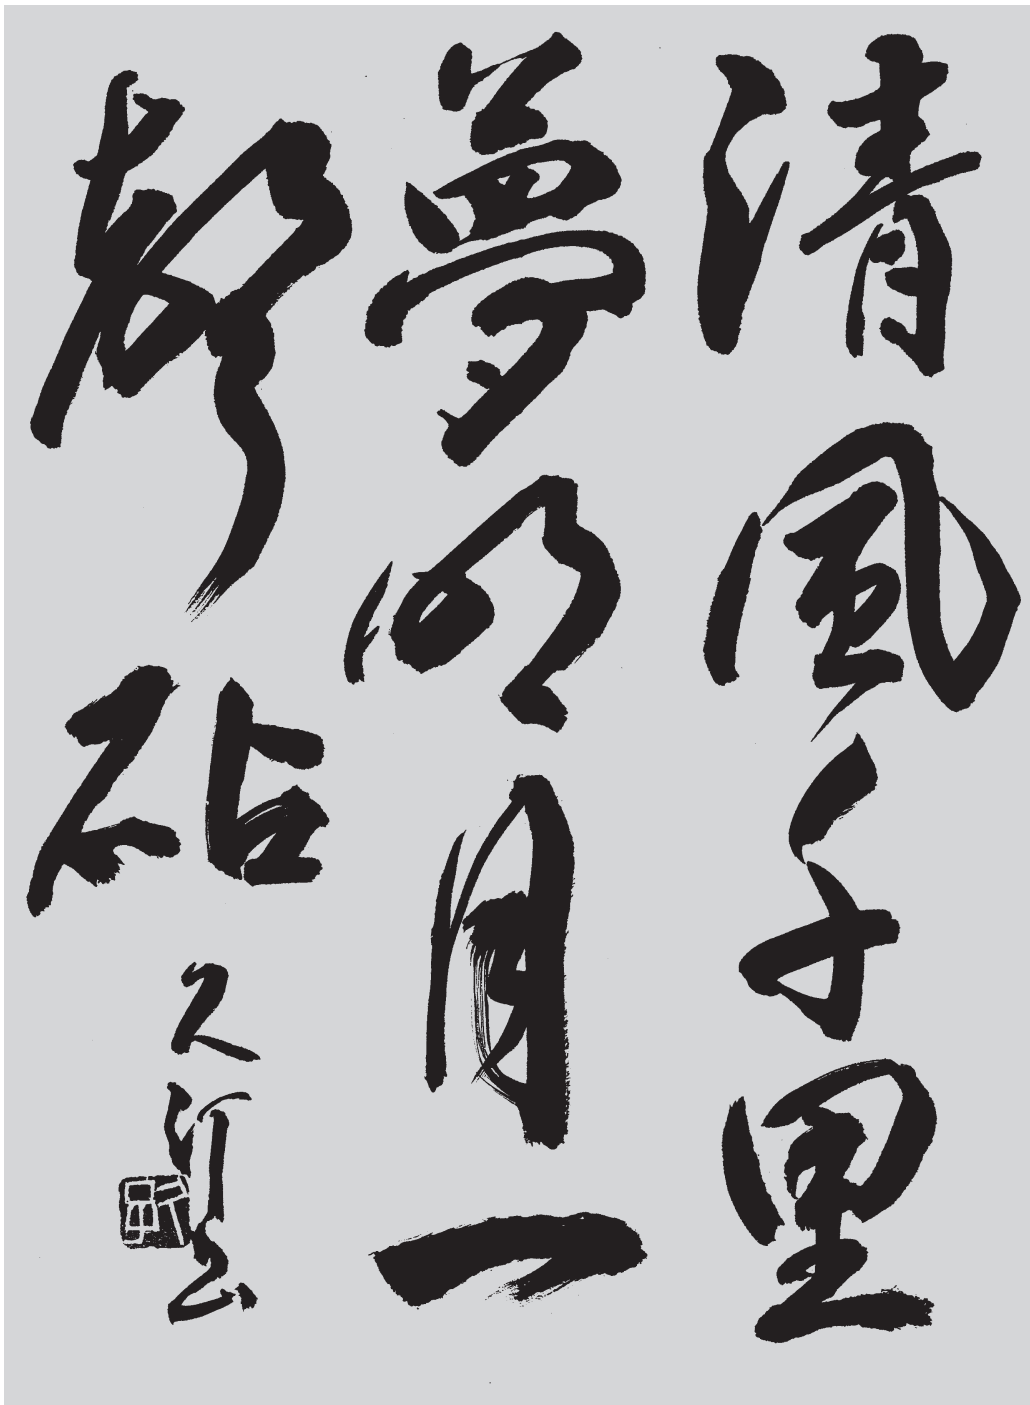 清風千里
夢明月一
聲砧
久江